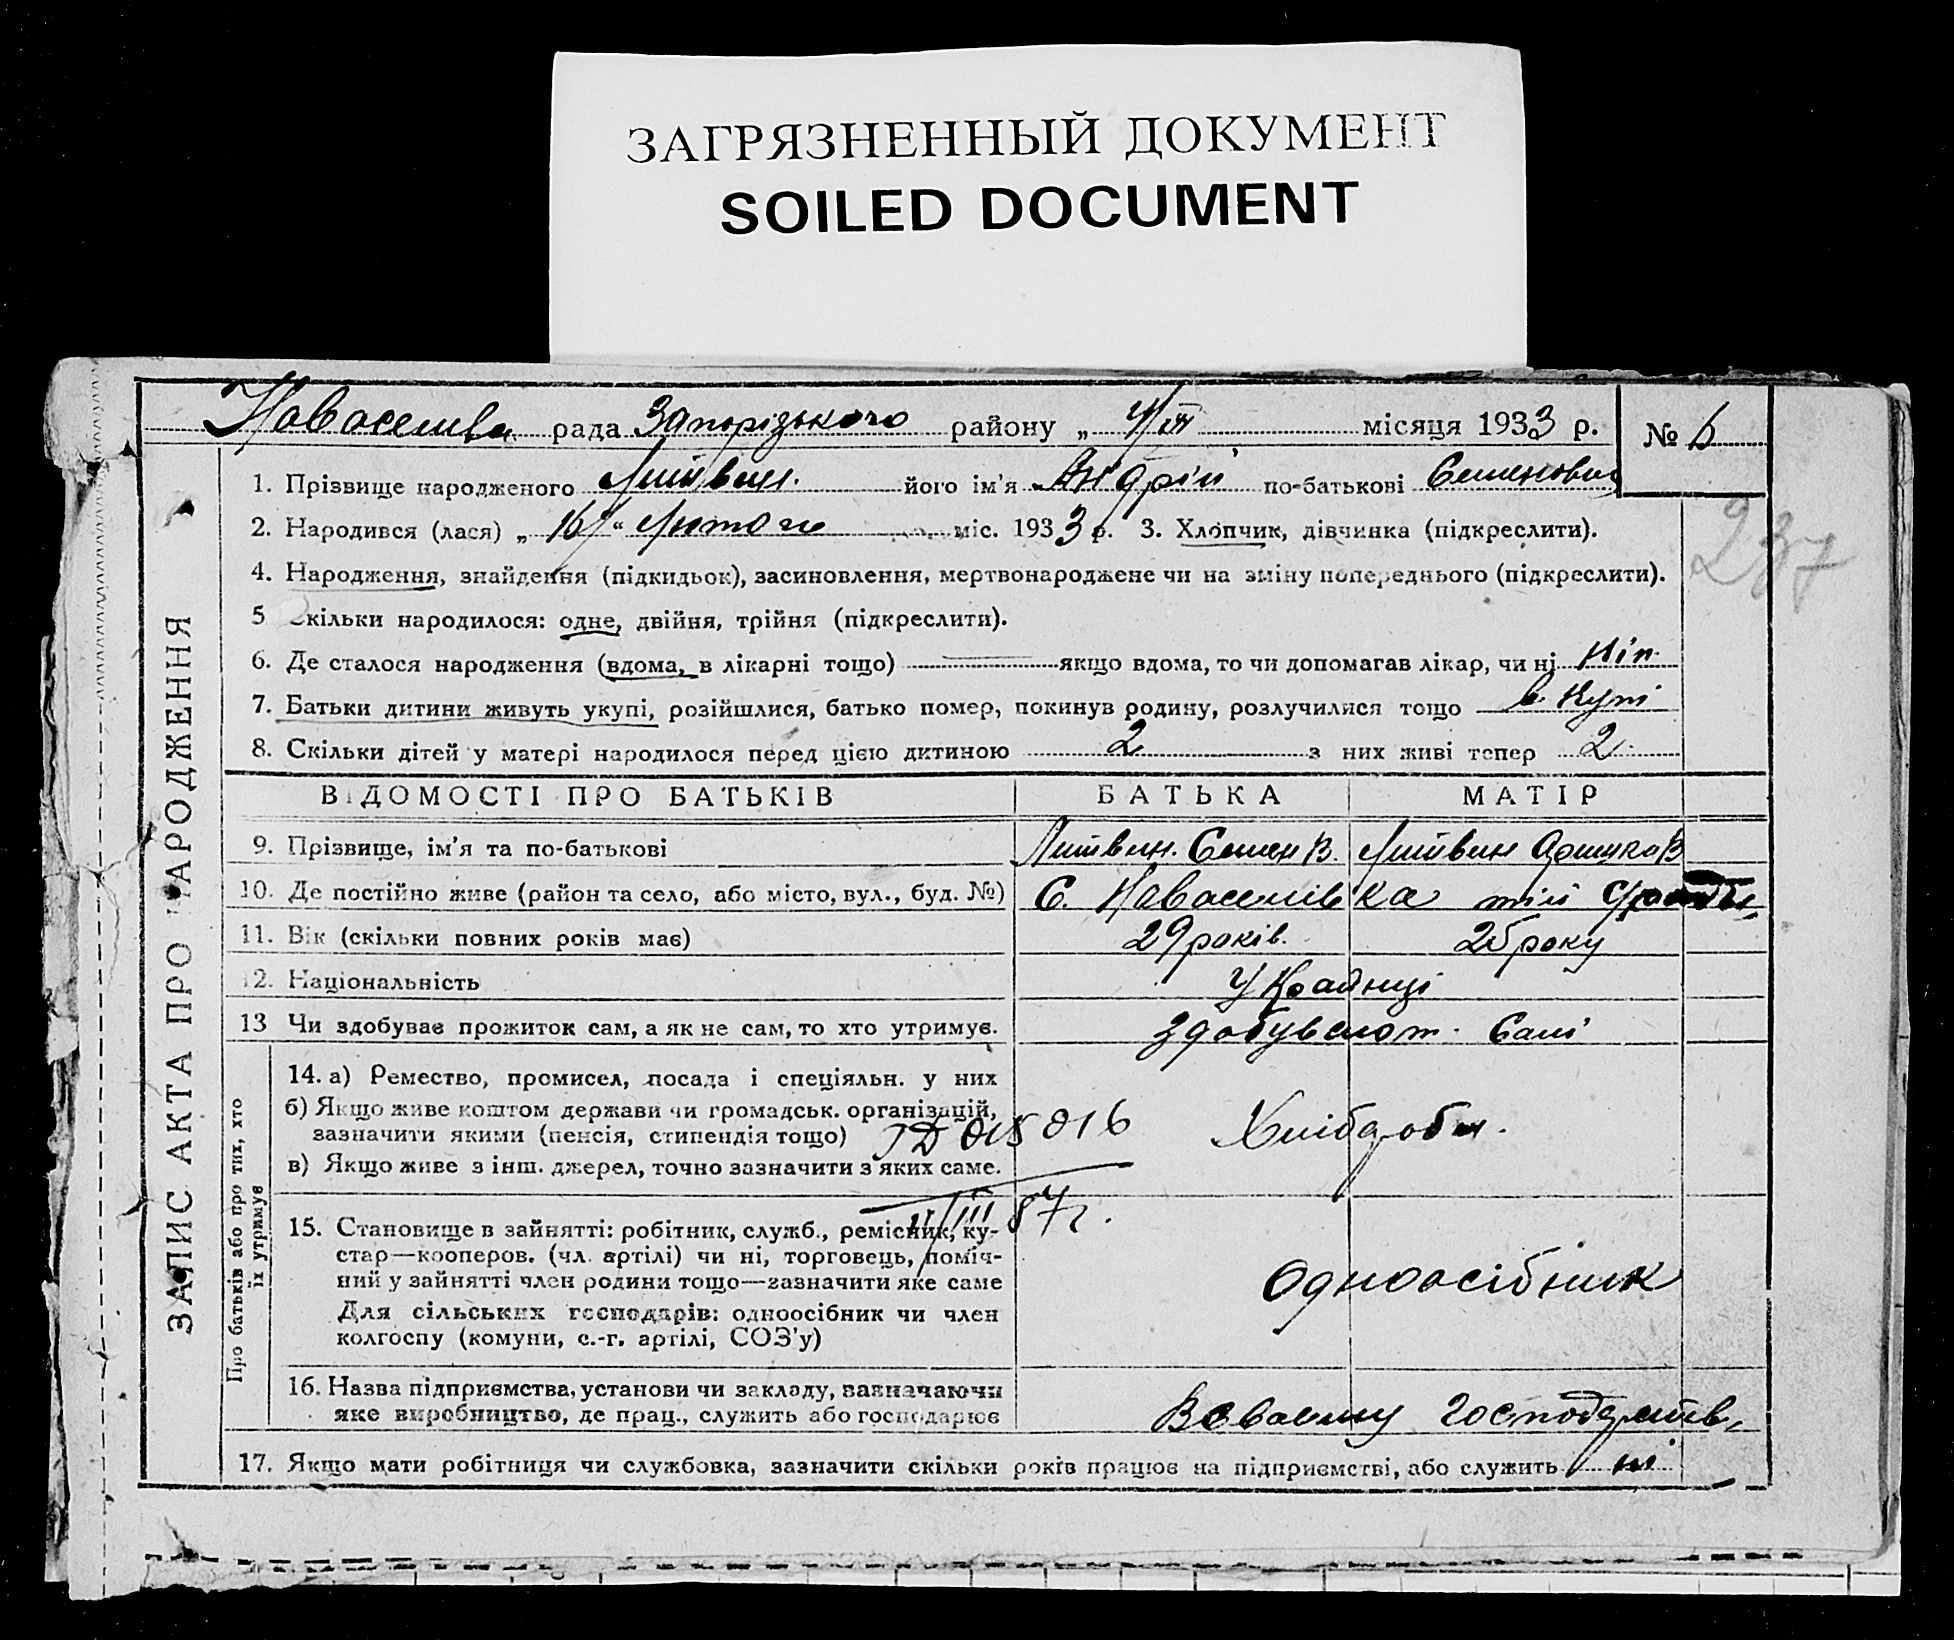 ЗАГРЯЗНЕННЫЙ ДОКУМЕНТ
SOILED DOCUMENT
рада Запорізького району „ 4/III місяця 1933 р. №
1. Прізвище народженого Литвин. його ім'я Андрій по-батькові Семенович
2. Народився (лася) „ 16 “ Лютого міс. 1933 р. 3. Хлопчик, дівчинка (підкреслити).
237
4. Народження, знайдення (підкидьок), засиновлення, мертвонароджене чи на зміну попереднього (підкреслити).
5 Скільки народилося: одне, двійня, трійня (підкреслити).
6. Де сталося народження (вдома, в лікарні тощо) якщо вдома, то чи допомагав лікар, чи ні
7. Батьки дитини живуть укупі, розійшлися, батько помер, покинув родину, розлучилися тощо в Купі
8. Скільки дітей у матері народилося перед цією дитиною 2 з них живі тепер 2
ВІДОМОСТІ ПРО БАТЬКІВ БАТЬКА МАТІР
9. Прізвище, ім'я та по-батькові Литвин. Семен В. Литвин
10. Де постійно живе (район та село, або місто, вул., буд. №) С. Наваселівка
11. Вік (скільки повних років має) 29 років. 25 року
12. Національність Украінці
13 Чи здобуває прожиток сам, а як не сам, то хто утримує. Здобувают. Самі
14. а) Ремество, промисел, посада і спеціяльн. у них
б) Якщо живе коштом держави чи громадськ. організацій,
зазначити якими (пенсія, стипендія тощо) 015016 Хлібороби.
в) Якщо живе з інш. джерел, точно зазначити з яких саме.
11/III 87 г.
15. Становище в зайнятті: робітник, служб., ремісник, ку-
стар—кооперов. (чл. артілі) чи ні, торговець, поміч-
ний у зайнятті член родини тощо—зазначити яке саме
Для сільських господарів: одноосібник чи член
колгоспу (комуни, с.-г. артілі, СОЗ'у)
Одноосібник
16. Назва підприємства, установи чи закладу, зазначаючи
яке виробництво, де прац., служить або господарює
17. Якщо мати робітниця чи службовка, зазначити скільки років працює на підприємстві, або служить ні
ЗАПИС АКТА ПРО НАРОДЖЕННЯ
Про батьків або про тих, хто
їх утримує